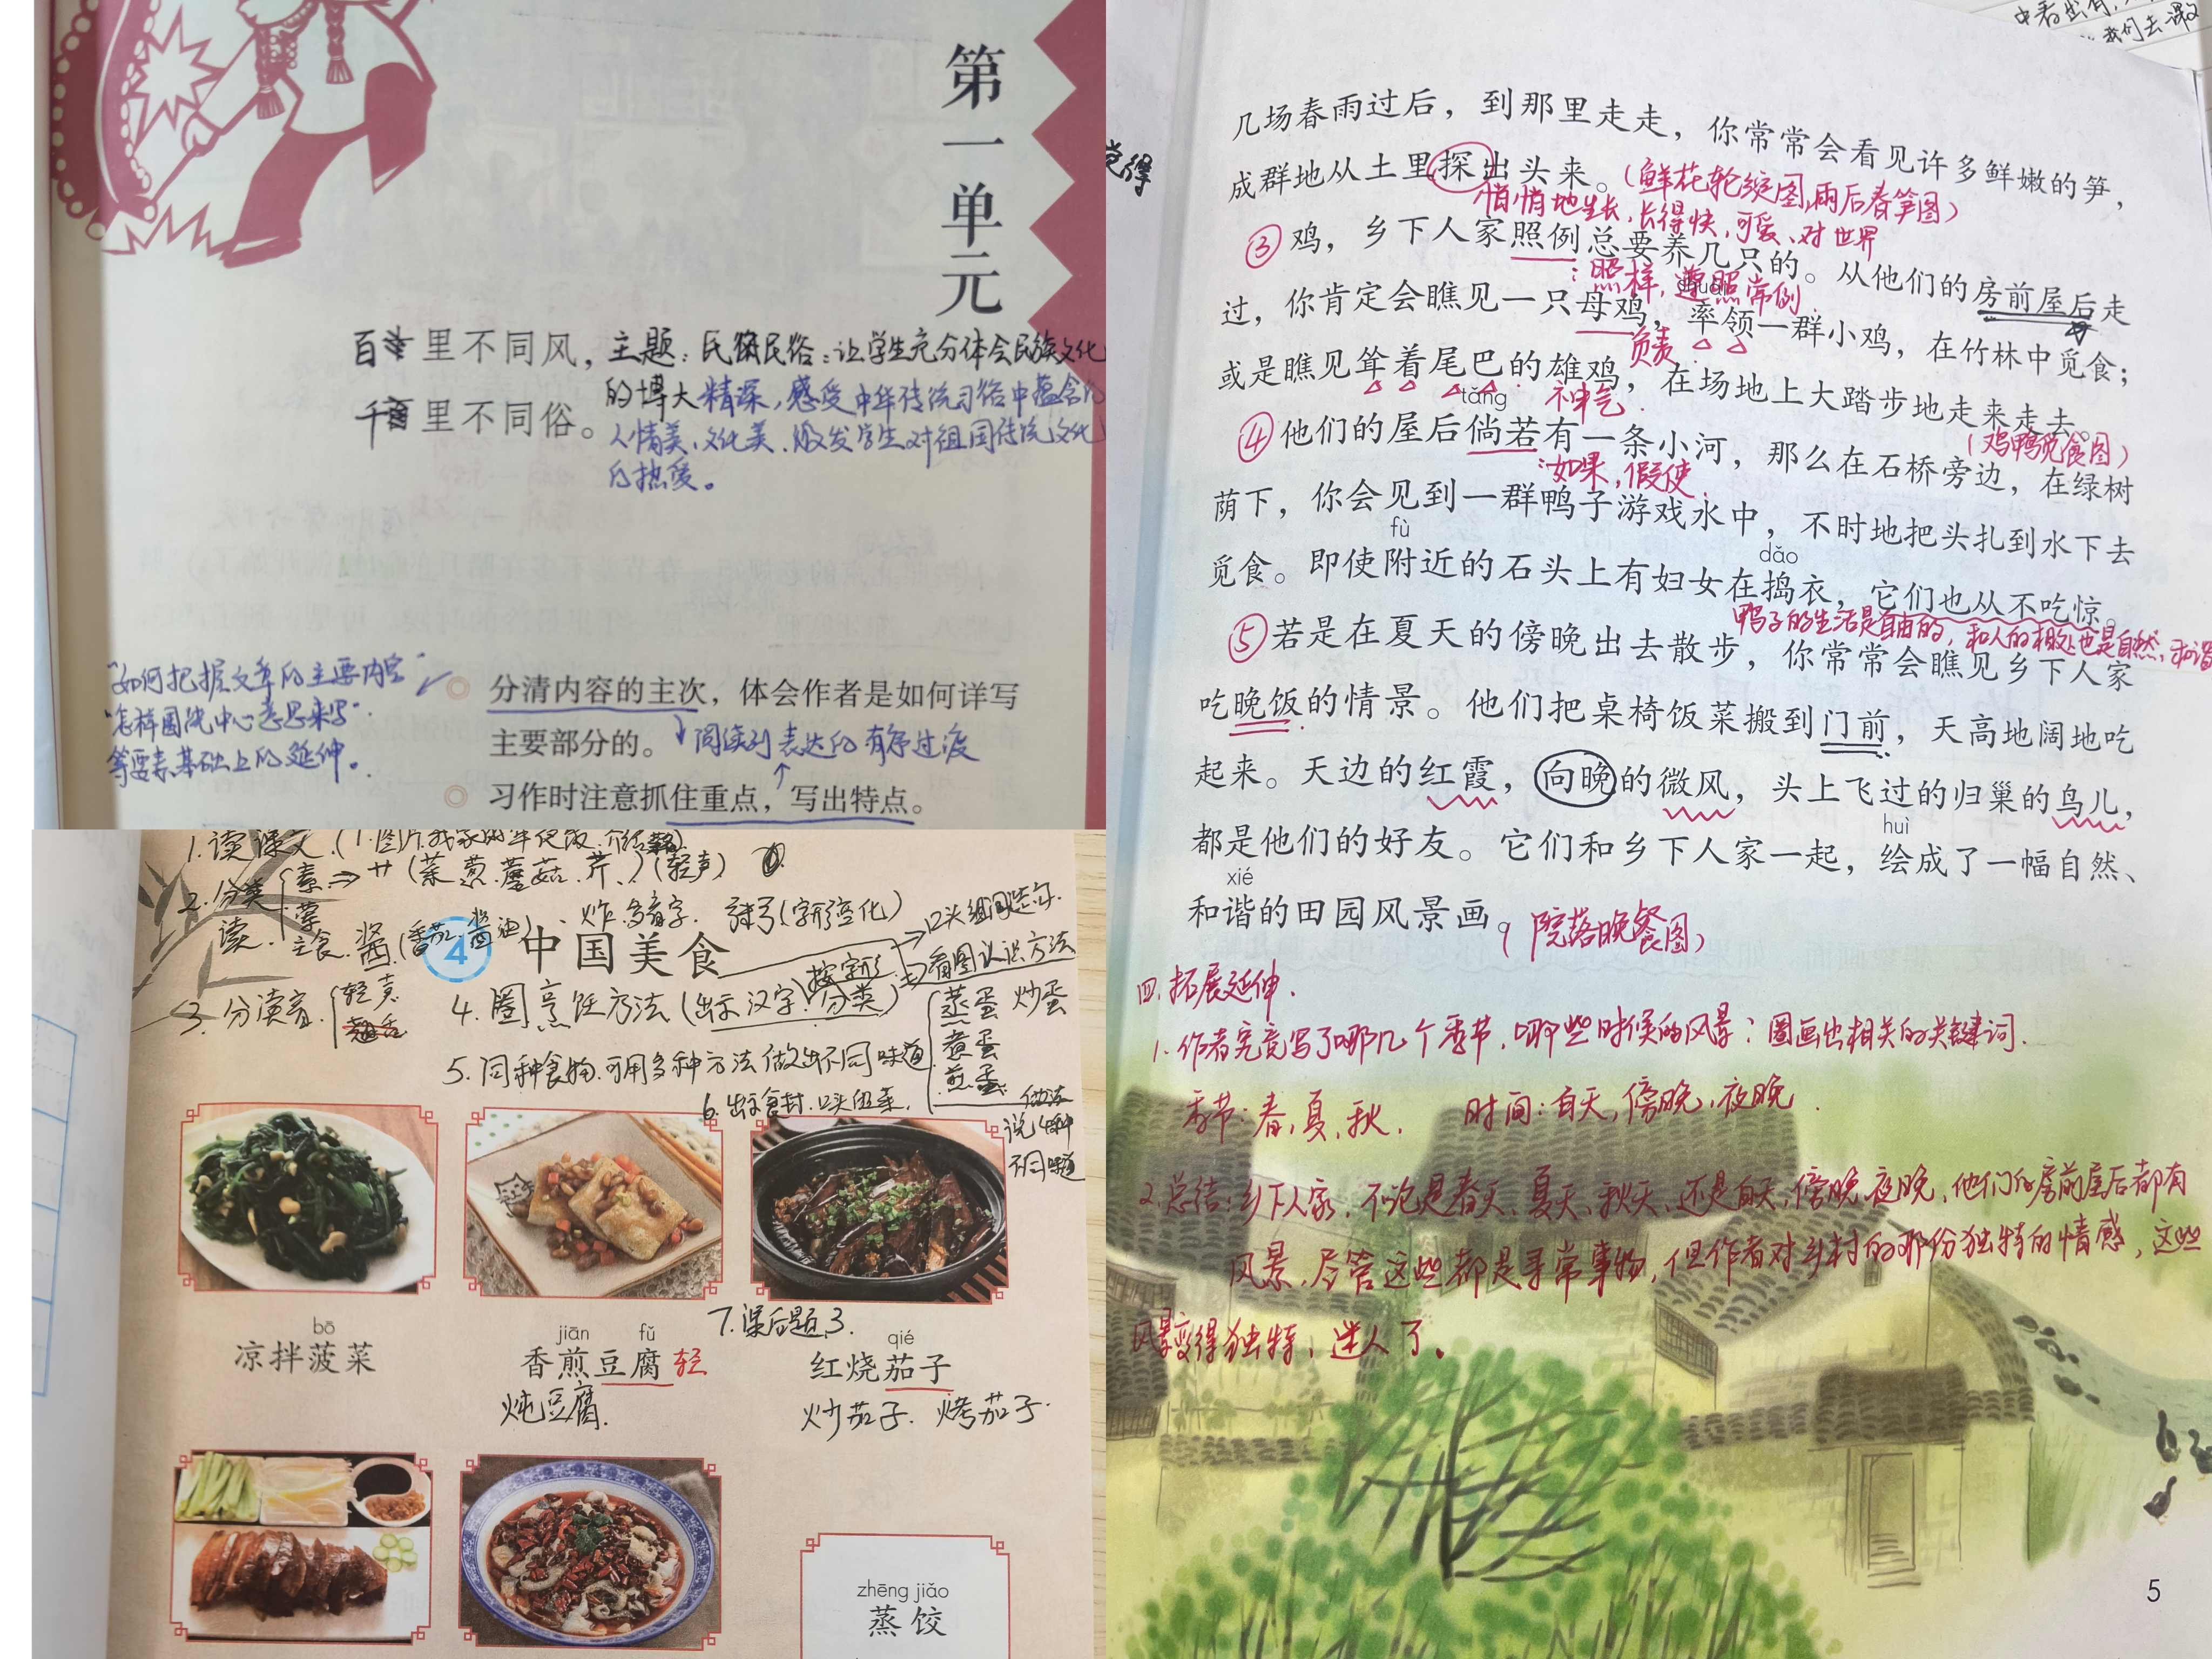 第一单元
百里不同风，
千里不同俗。
主题：民俗民俗：让学生充分体会民族文化
的博大精深，感受中华传统习俗中蕴含的
人情美、文化美、激发学生对祖国传统文化
的热爱。
"如何把握文章的主要内容"
"怎样围绕中心意思来写"
等要素基础上的延伸。
分清内容的主次，体会作者是如何详写
主要部分的。
阅读到表达的有序过渡
习作时注意抓住重点，写出特点。
1.读课文.(1.图片.我家的年夜饭.介绍
2.分类读.
素⇒艹(菜葱蘑菇.芹.)(轻声)
荤
主食.酱(番茄.酱油)、炸.多音字.
(字形变化)
口头组词造句.
4 中国美食
按字形分类
看图认识方法
3.分读音.
轻声
翘舌
4.圈烹饪方法(出示汉字.分类)
蒸蛋 炒蛋
煮蛋
煎蛋
5.同种食物.可用多种方法做出不同味道
6.出示食材.口头组菜.
做法
说各种
不同味道
7.课后题3.
bō
凉拌菠菜
jiān fǔ
香煎豆腐 轻
炖豆腐.
qié
红烧茄子
炒茄子. 烤茄子.
zhēng jiǎo
蒸饺
中看出有，
我们去课文
觉得
几场春雨过后，到那里走走，你常常会看见许多鲜嫩的笋，
成群地从土里探出头来。(鲜花轮绽图，雨后春笋图)
悄悄地生长，长得快，可爱、对世界
③鸡，乡下人家照例总要养几只的。从他们的房前屋后走
：照样，遵照常例.
shuài
过，你肯定会瞧见一只母鸡，率领一群小鸡，在竹林中觅食；
负责
或是瞧见耸着尾巴的雄鸡，在场地上大踏步地走来走去。
神气.
(鸡鸭觅食图)
tǎng
④他们的屋后倘若有一条小河，那么在石桥旁边，在绿树
：如果，假使.
荫下，你会见到一群鸭子游戏水中，不时地把头扎到水下去
fù
dǎo
觅食。即使附近的石头上有妇女在捣衣，它们也从不吃惊。
鸭子的生活是自由的，和人的相处也是自然，和谐
⑤若是在夏天的傍晚出去散步，你常常会瞧见乡下人家
吃晚饭的情景。他们把桌椅饭菜搬到门前，天高地阔地吃
起来。天边的红霞，向晚的微风，头上飞过的归巢的鸟儿，
huì
都是他们的好友。它们和乡下人家一起，绘成了一幅自然、
xié
和谐的田园风景画。(院落晚餐图)
四.拓展延伸.
1.作者究竟写了哪几个季节，哪些时候的风景？圈画出相关的关键词.
季节：春，夏，秋. 时间：白天，傍晚，夜晚.
2.总结：乡下人家，不论是春天、夏天、秋天、还是白天，傍晚夜晚，他们的房前屋后都有
风景，尽管这些都是寻常事物，但作者对乡村的那份独特的情感，这些
风景变得独特，迷人了。
5